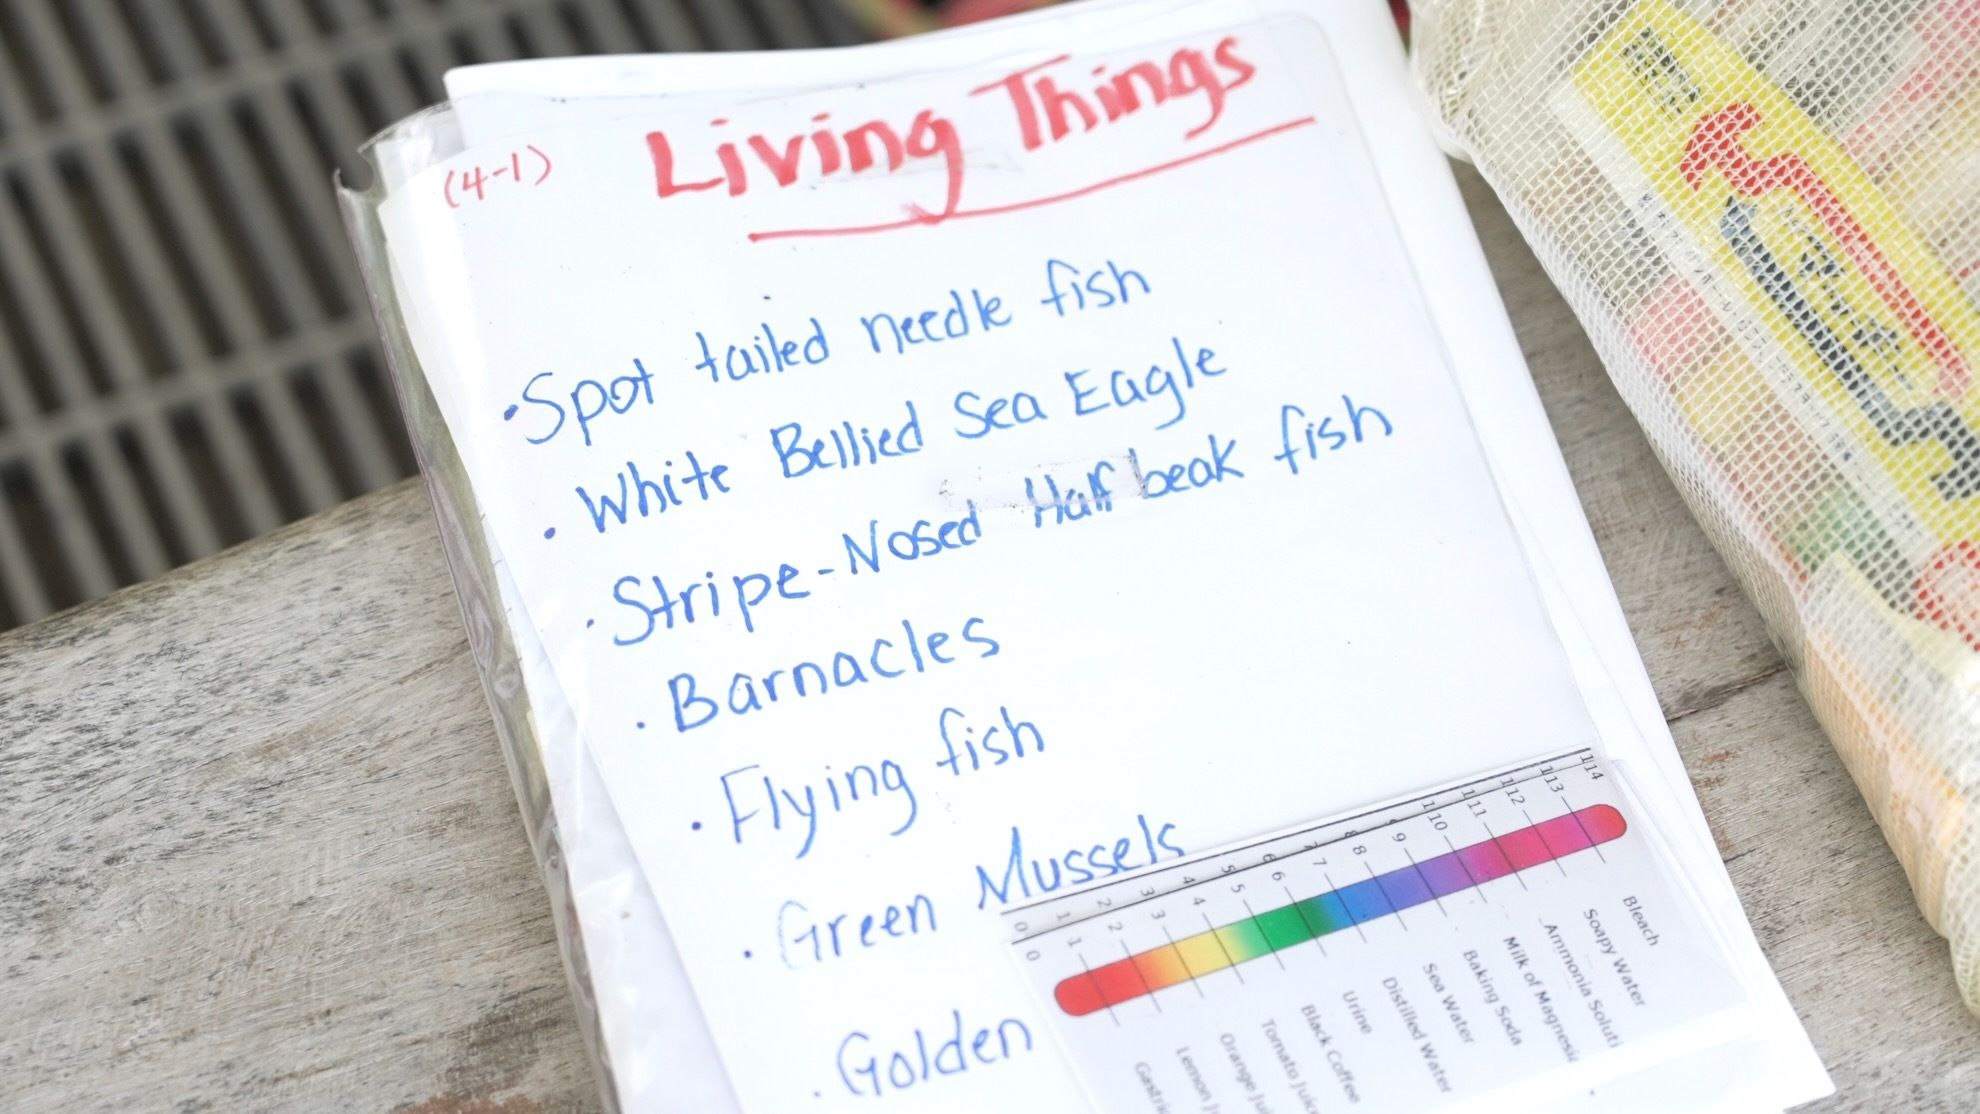 (4-1) Living Things
• Spot tailed needle fish
• White Bellied Sea Eagle
• Stripe-Nosed Half beak fish
• Barnacles
• Flying fish
• Green Mussels
• Golden
0 1 2 3 4 5 6 7 8 9 10 11 12 13 14
0 1 2 3 4 5 6 7 8 9 10 11 12 13 14
Lemon
Orange
Tomato
Black Coffee
Urine
Distilled Water
Sea Water
Baking Soda
Milk of
Ammonia
Soapy Water
Bleach